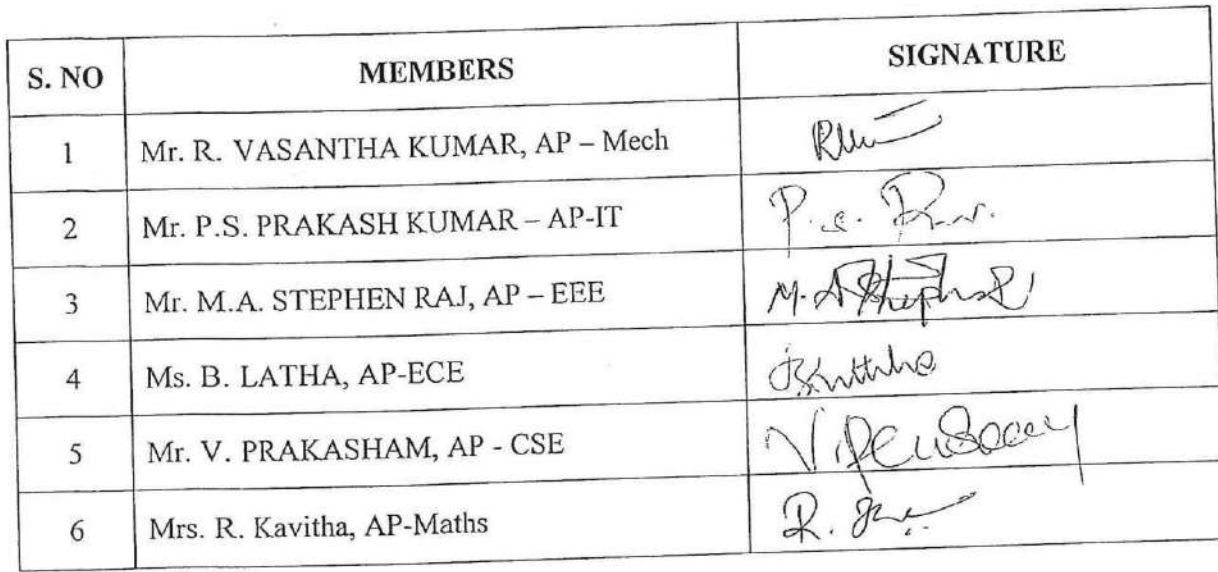 S. NO MEMBERS SIGNATURE
1 Mr. R. VASANTHA KUMAR, AP – Mech
2 Mr. P.S. PRAKASH KUMAR – AP-IT
3 Mr. M.A. STEPHEN RAJ, AP – EEE
4 Ms. B. LATHA, AP-ECE
5 Mr. V. PRAKASHAM, AP - CSE
6 Mrs. R. Kavitha, AP-Maths